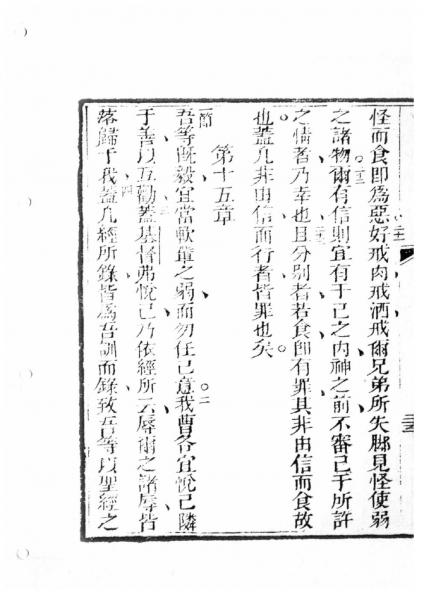 怪而食即為惡好戒肉戒酒戒爾兄弟所失脚見怪使弱
之諸物爾有信則宜有于己之内神之前不審己于所許
之情者乃幸也且分别者若食即有罪其非由信而食故
也蓋凡非由信而行者皆罪也矣
第十五章
一節
吾等既毅宜當軟輩之弱而勿任己意我曹各宜悅己隣
于善以互勸蓋基督弗悅己乃依經所云辱爾之諸辱皆
落歸于我蓋凡經所錄皆為吾訓而錄致吾等以聖經之